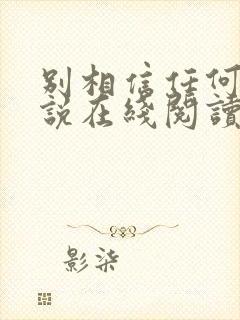 别相信任何
說在綫閱讀
影柒